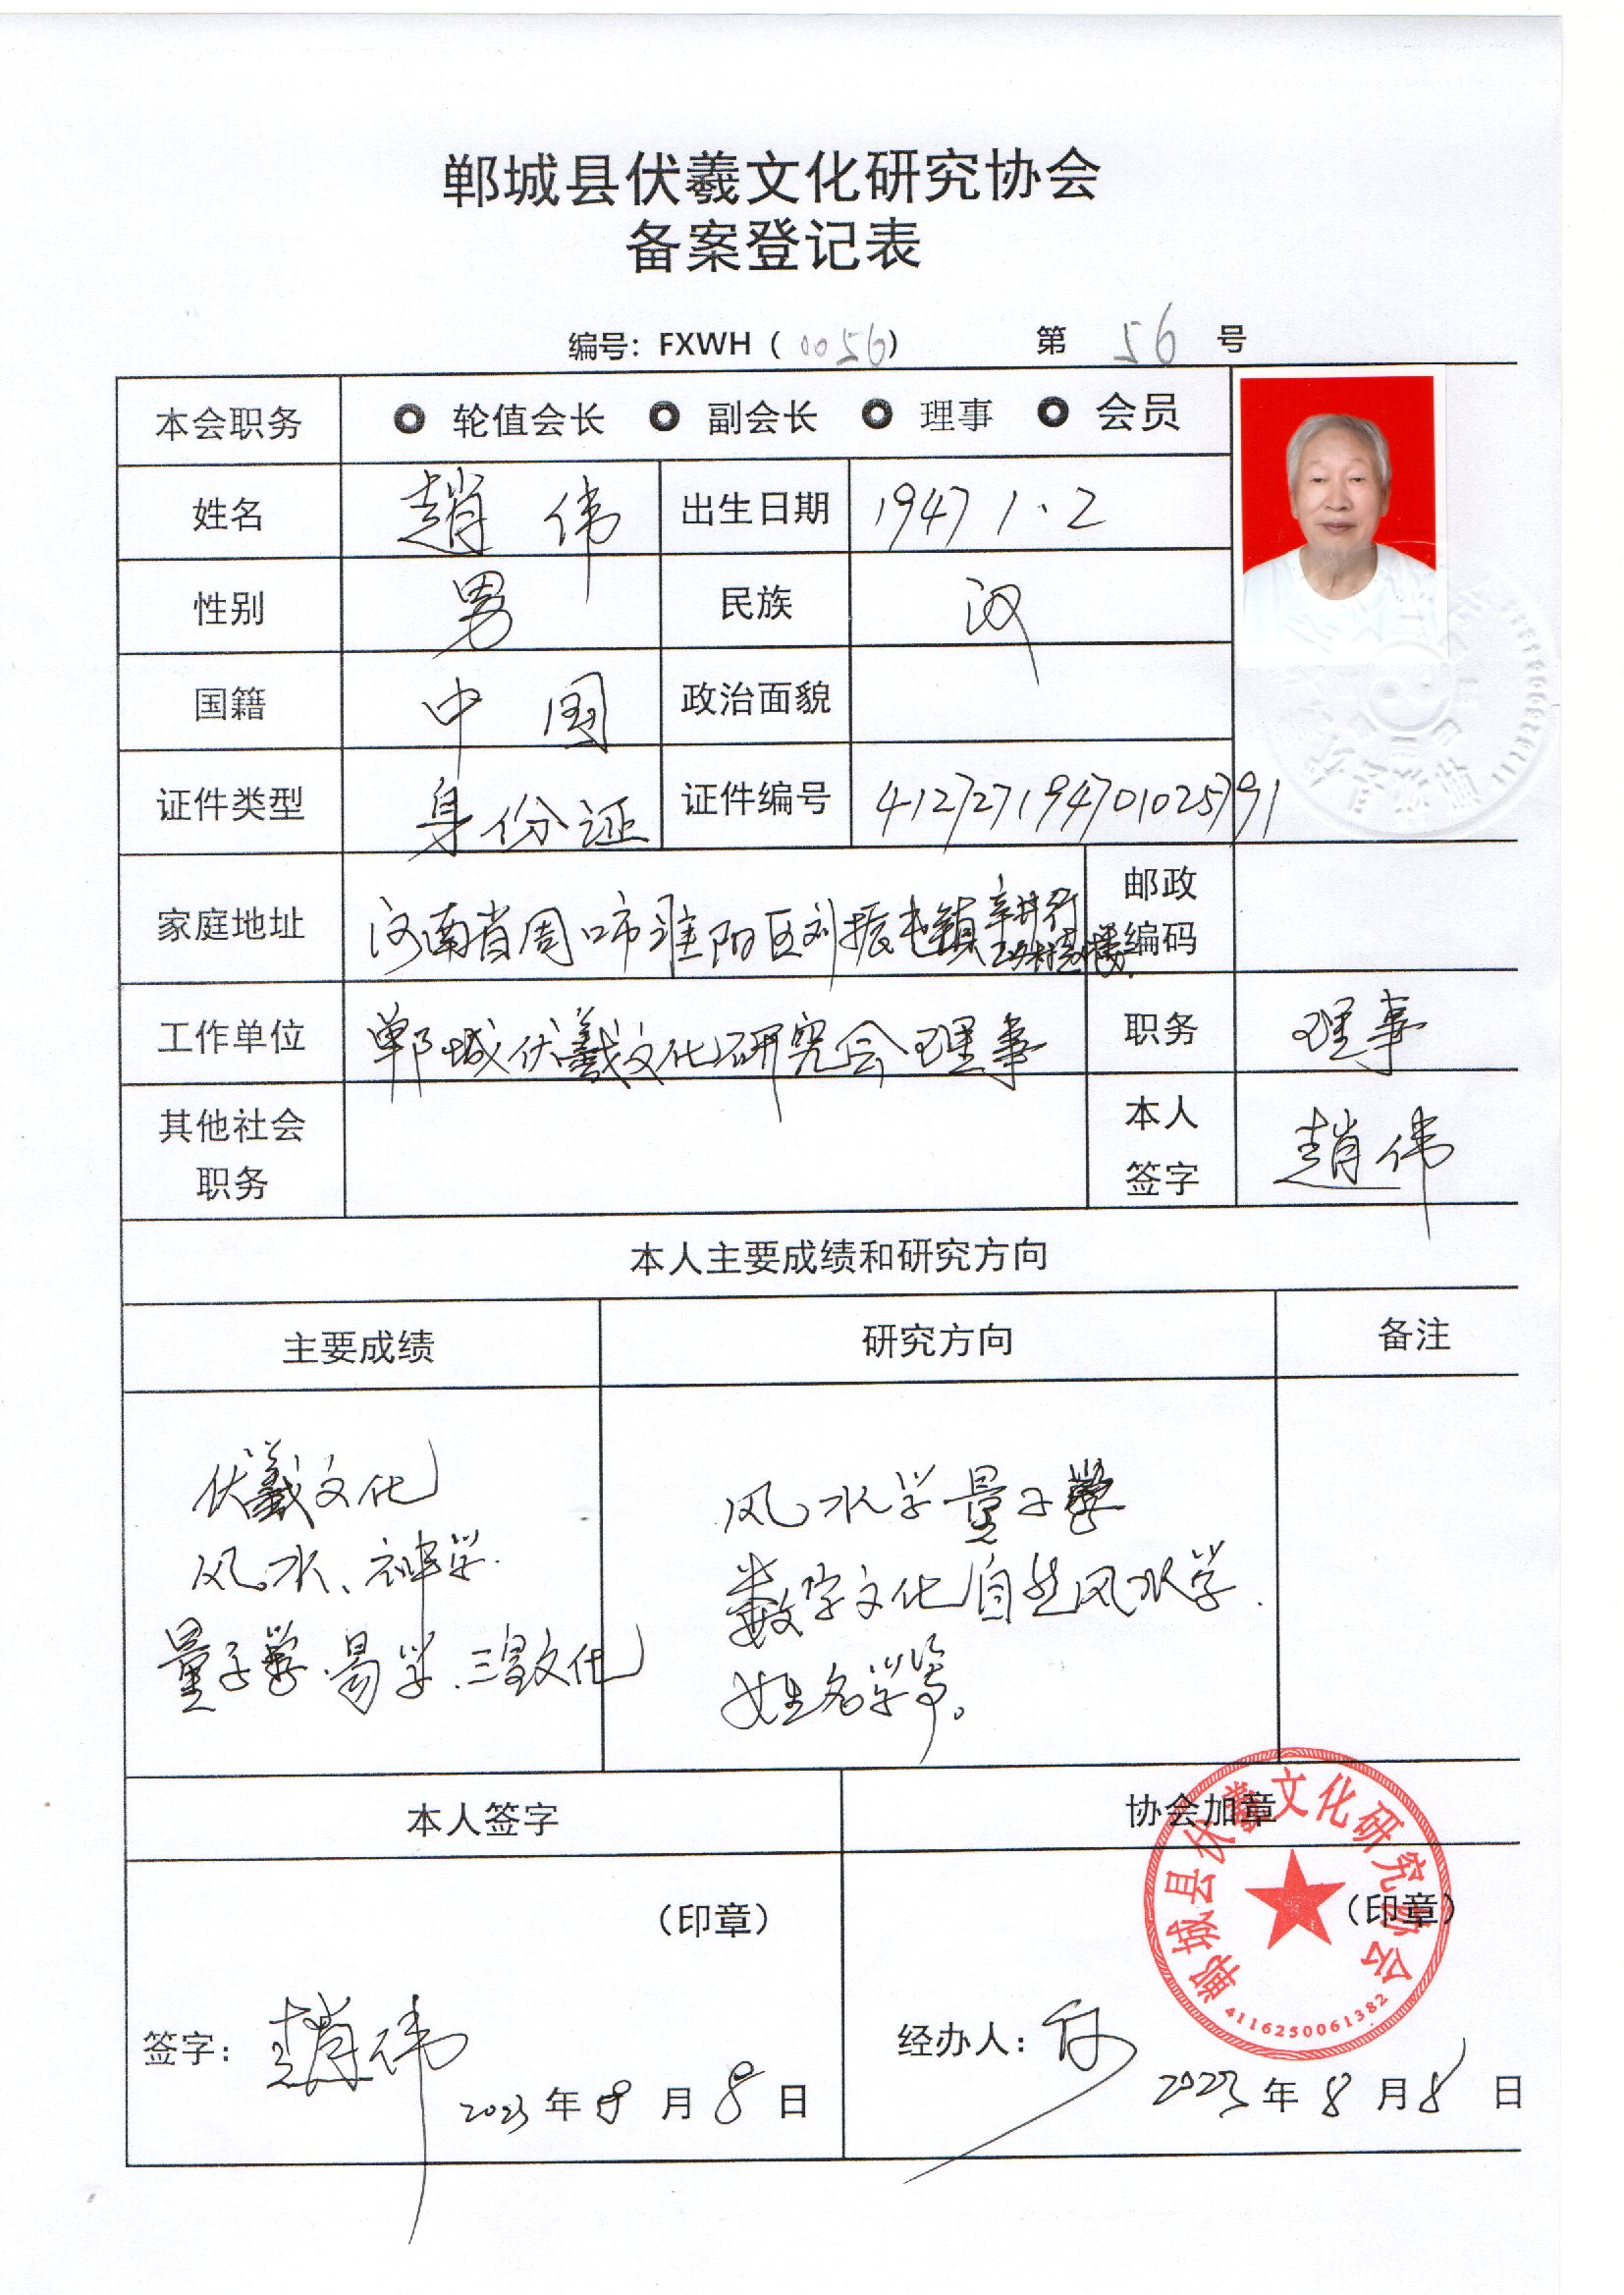 郸城县伏羲文化研究协会
备案登记表
编号：FXWH（0056） 第 56 号
本会职务 轮值会长 副会长 理事 会员
姓名 趙伟 出生日期 1947 1.2
性别 男 民族 汉
国籍 中国 政治面貌
证件类型 身份证 证件编号 412727194701025791
家庭地址 河南省周口市淮阳区刘振屯镇 邮政编码
工作单位 郸城伏羲文化研究会理事 职务 理事
其他社会职务 本人签字 趙伟
本人主要成绩和研究方向
主要成绩 研究方向 备注
伏羲文化
风水、神学.
量子学.易学.三皇文化
风水学量子学
数字文化自然风水学.
姓名学等。
本人签字 协会加章
（印章） （印章）
郸城县伏羲文化研究协会
4116250061382
签字：趙伟 经办人：
2023年8月8日 2023年8月8日